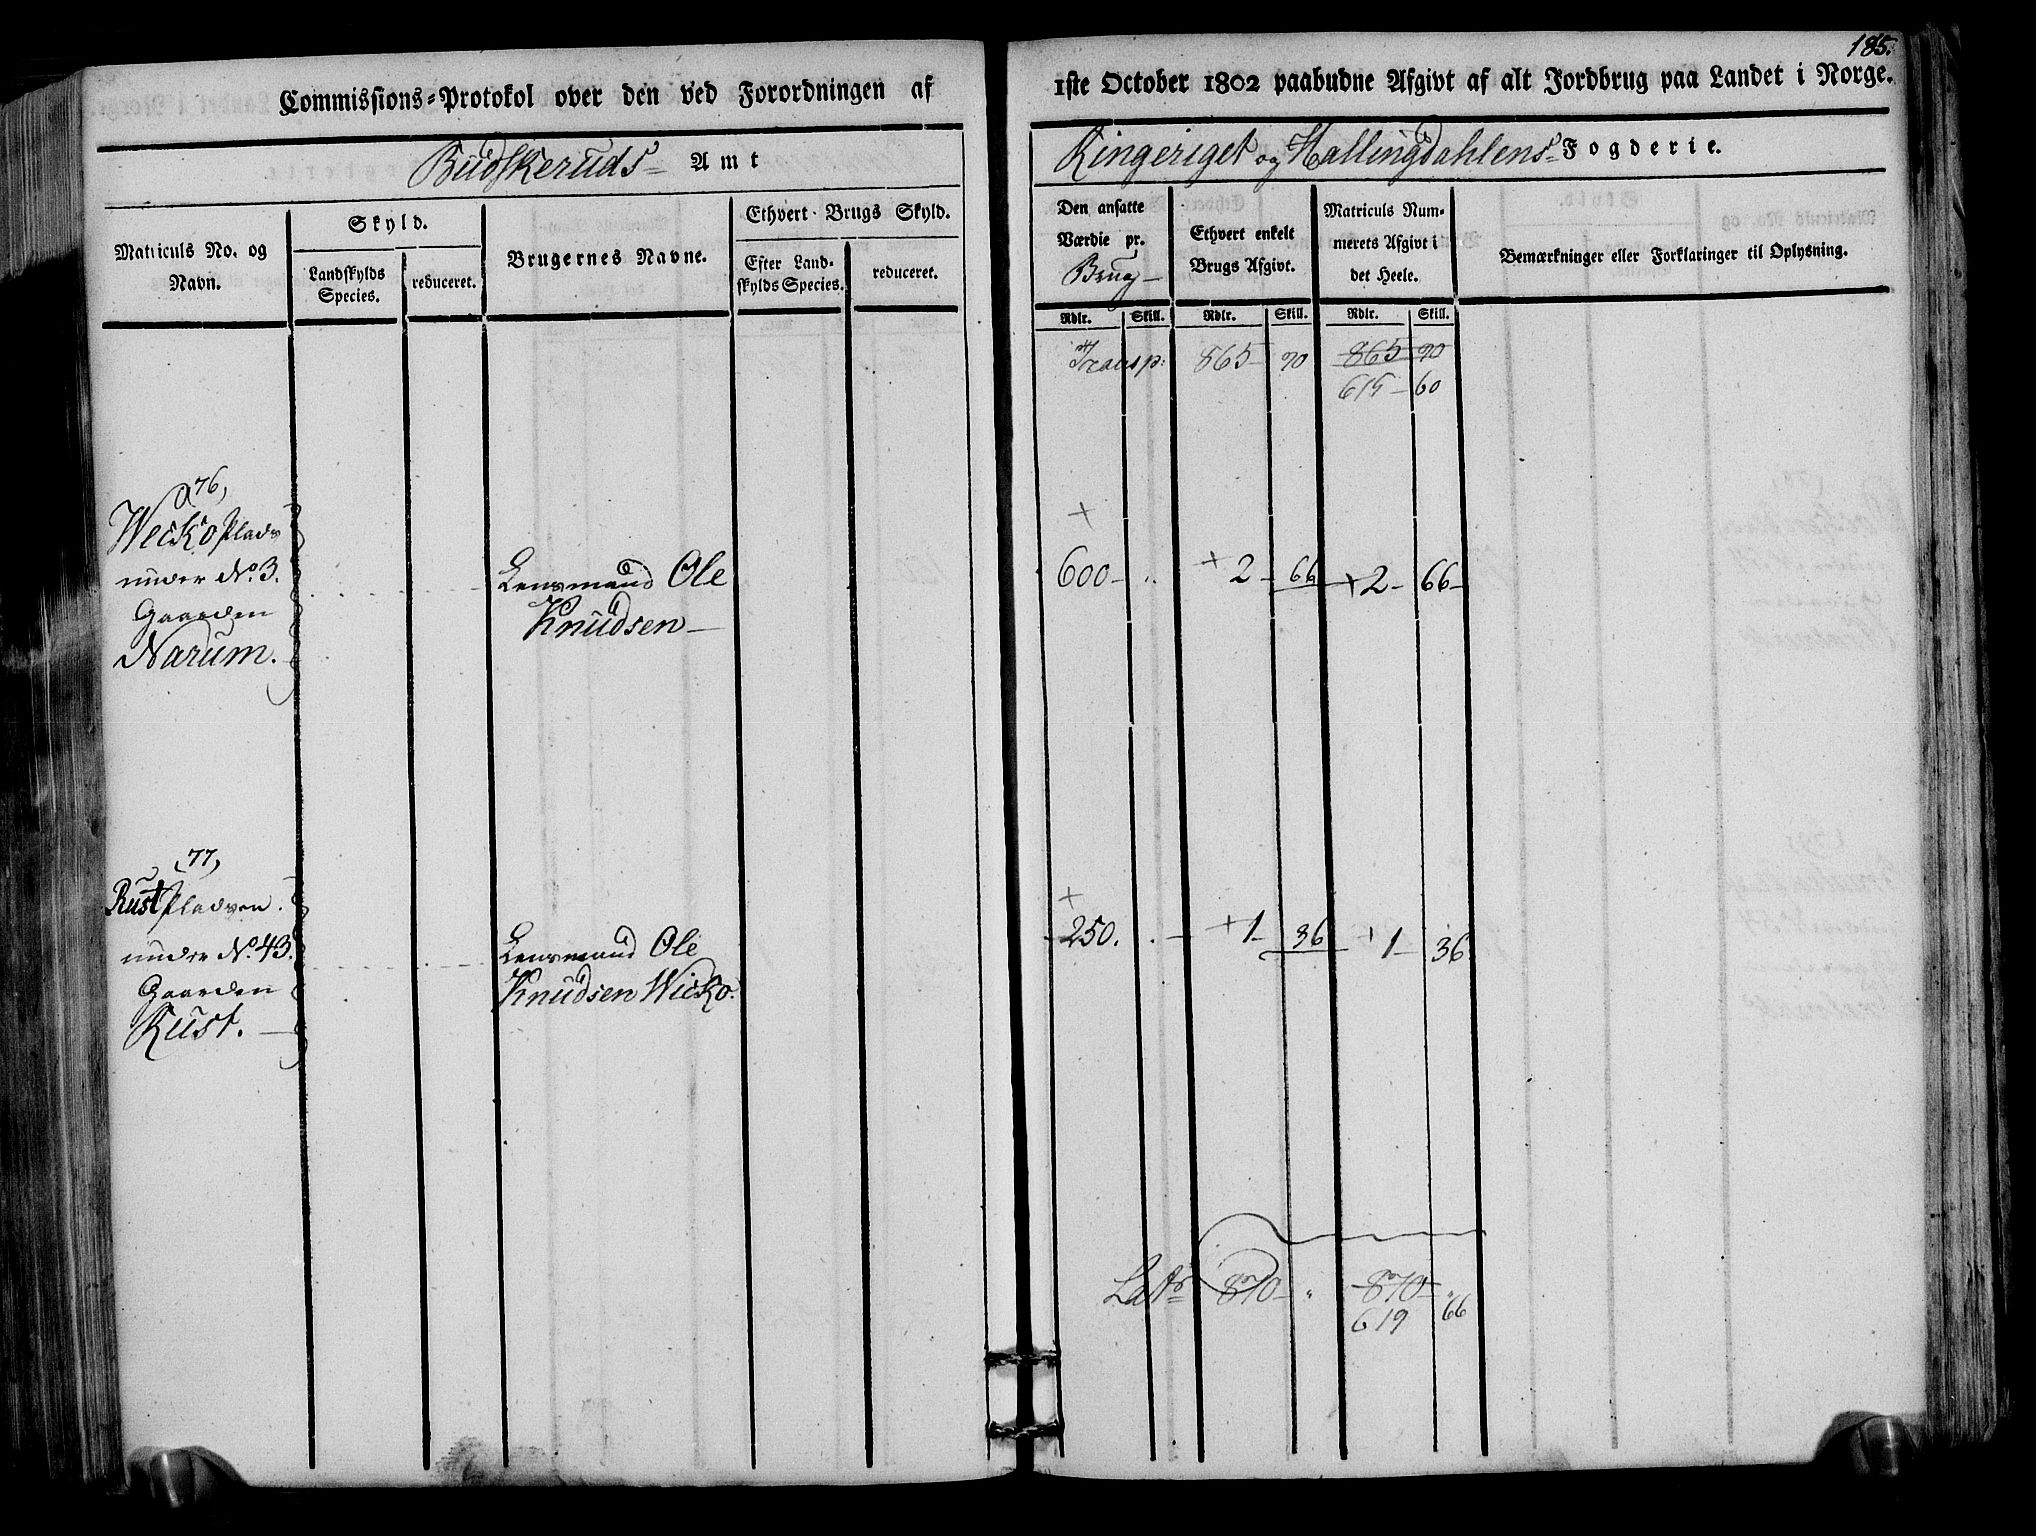 Commissions-Protokol over den ved Forordningen af
Budskeruds Amt
Matriculs No. og Navn.
Skyld.
Landskylds Species.
reduceret.
Brugernes Navne.
Ethvert Brugs Skyld.
Efter Landskylds Species.
reduceret.
76,
Wecko Plads
under No. 3.
Gaarden
Narum.
Lensmand Ole
Knudsen
77,
Rust Pladsen
under No. 43.
Gaarden
Rust.
Lensmand Ole
Knudsen Wicko.
185.
1ste October 1802 paabudne Afgivt af alt Jordbrug paa Landet i Norge.
Ringeriget og Hallingdahlens Fogderie.
Den ansatte
Værdie pr.
Brug
Ethvert enkelt
Brugs Afgivt.
Matriculs Num-
merets Afgivt i
det Heele.
Bemærkninger eller Forklaringer til Oplysning.
Rdlr. Skill. Rdlr. Skill. Rdlr. Skill.
Transp: 865 90 865 90
615 60
+
600 + 2 66 + 2 66
+
250. + 1 36 + 1 36
Latr 870 " 870 "
619 66